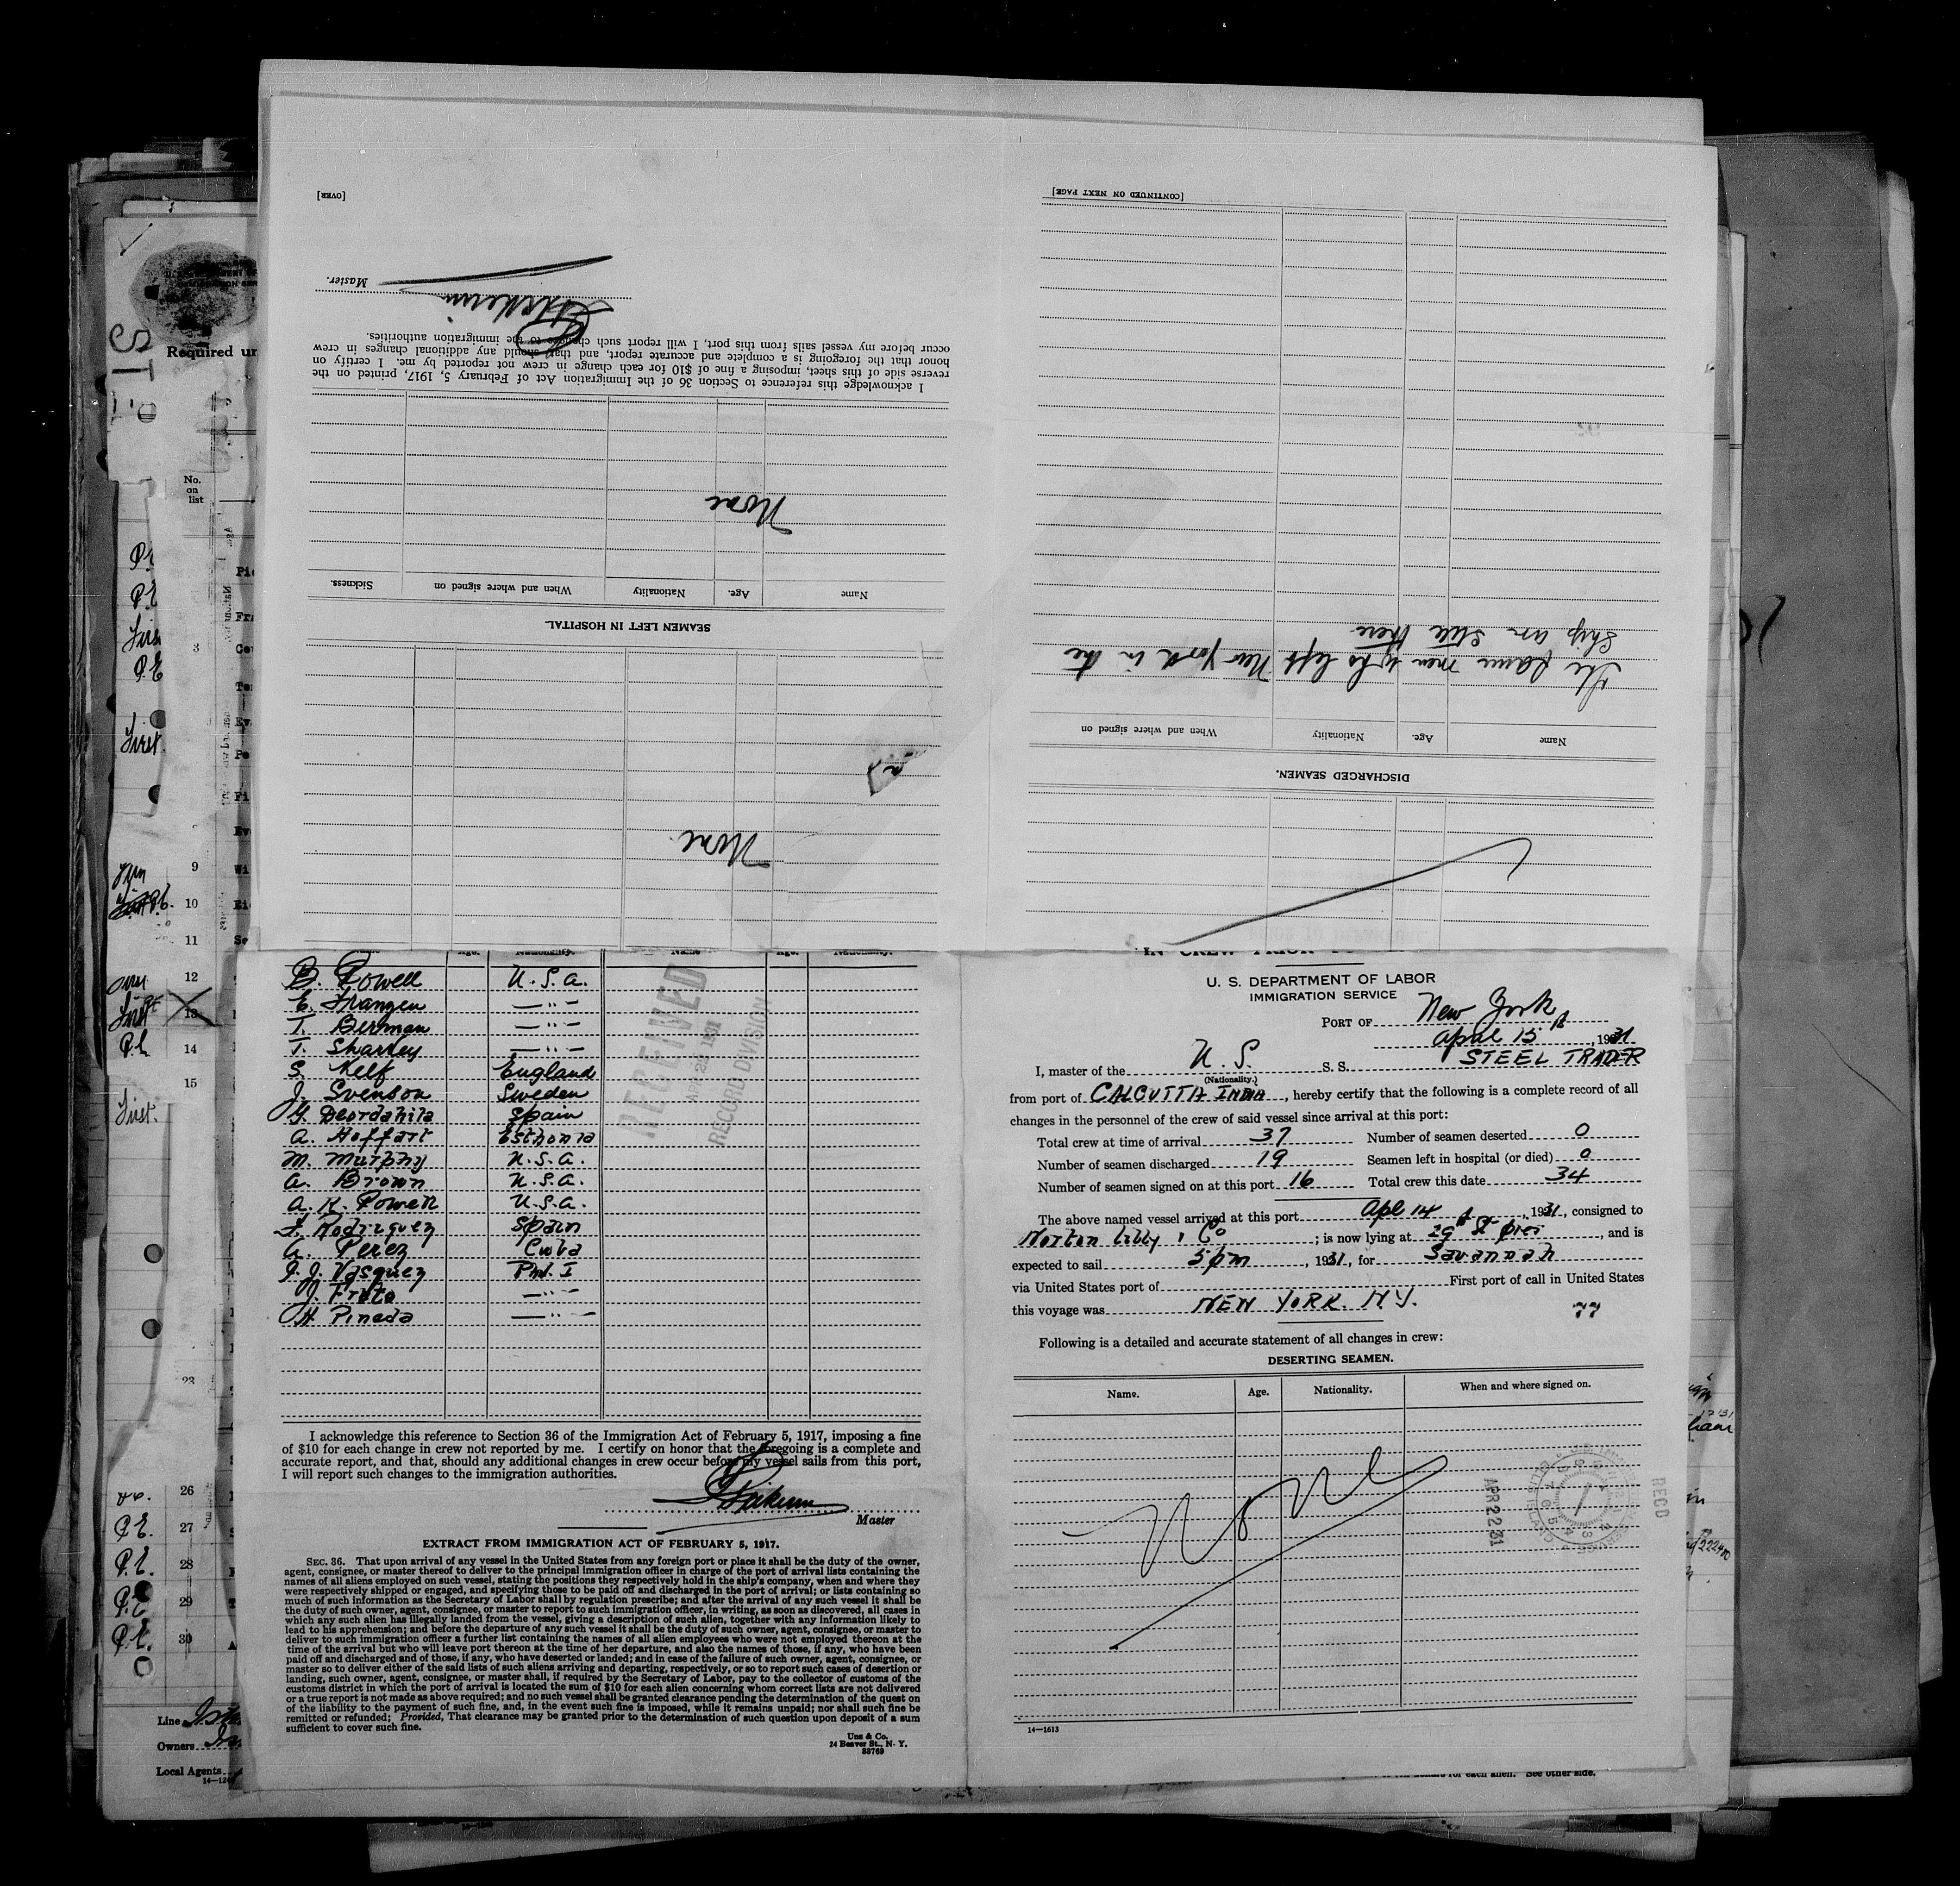 [OVER]
Master.
I acknowledge this reference to Section 36 of the Immigration Act of February 5, 1917, printed on the
reverse side of this sheet, imposing a fine of $10 for each change in crew not reported by me. I certify on
honor that the foregoing is a complete and accurate report, and that, should any additional changes in crew
occur before my vessel sails from this port, I will report such changes to the immigration authorities.
None
Name Age. Nationality When and where signed on Sickness.
SEAMEN LEFT IN HOSPITAL.
None
[CONTINUED ON NEXT PAGE]
The same men who left New York in the
Ship are still there
Name Age. Nationality When and where signed on
DISCHARGED SEAMEN.
Age. Nationality. Name Age. Nationality.
B. Powell U.S.A.
E. Frangen — " —
T. Berbman — " —
T. Sharkey — " —
S. Kelf England
J. Svenson Sweden
G. Deordahita Spain
A. Hoffart Esthonia
M. Murphy U.S.A.
A. Brown U.S.A.
A. R. Power U.S.A.
F. Rodriguez Spain
A. Perez Cuba
P. J. Vasquez Phil. I
J. Frets — " —
H. Pineda — " —
RECEIVED
APR 22 1931
RECORD DIVISION
I acknowledge this reference to Section 36 of the Immigration Act of February 5, 1917, imposing a fine
of $10 for each change in crew not reported by me. I certify on honor that the foregoing is a complete and
accurate report, and that, should any additional changes in crew occur before my vessel sails from this port,
I will report such changes to the immigration authorities.
Master
EXTRACT FROM IMMIGRATION ACT OF FEBRUARY 5, 1917.
SEC. 36. That upon arrival of any vessel in the United States from any foreign port or place it shall be the duty of the owner,
agent, consignee, or master thereof to deliver to the principal immigration officer in charge of the port of arrival lists containing the
names of all aliens employed on such vessel, stating the positions they respectively hold in the ship's company, when and where they
were respectively shipped or engaged, and specifying those to be paid off and discharged in the port of arrival; or lists containing so
much of such information as the Secretary of Labor shall by regulation prescribe; and after the arrival of any such vessel it shall be
the duty of such owner, agent, consignee, or master to report to such immigration officer, in writing, as soon as discovered, all cases in
which any such alien has illegally landed from the vessel, giving a description of such alien, together with any information likely to
lead to his apprehension; and before the departure of any such vessel it shall be the duty of such owner, agent, consignee, or master to
deliver to such immigration officer a further list containing the names of all alien employees who were not employed thereon at the
time of the arrival but who will leave port thereon at the time of her departure, and also the names of those, if any, who have been
paid off and discharged and of those, if any, who have deserted or landed; and in case of the failure of such owner, agent, consignee, or
master so to deliver either of the said lists of such aliens arriving and departing, respectively, or so to report such cases of desertion or
landing, such owner, agent, consignee, or master shall, if required by the Secretary of Labor, pay to the collector of customs of the
customs district in which the port of arrival is located the sum of $10 for each alien concerning whom correct lists are not delivered
or a true report is not made as above required; and no such vessel shall be granted clearance pending the determination of the quest on
of the liability to the payment of such fine, and, in the event such fine is imposed, while it remains unpaid; nor shall such fine be
remitted or refunded; Provided, That clearance may be granted prior to the determination of such question upon deposit of a sum
sufficient to cover such fine.
Uns & Co.
24 Beaver St., N. Y.
83769
U. S. DEPARTMENT OF LABOR
IMMIGRATION SERVICE
PORT OF New York
April 15, 1931
I, master of the U.S. S. S. STEEL TRADER
(Nationality.)
from port of CALCUTTA INDIA, hereby certify that the following is a complete record of all
changes in the personnel of the crew of said vessel since arrival at this port:
Total crew at time of arrival 37 Number of seamen deserted 0
Number of seamen discharged 19 Seamen left in hospital (or died) 0
Number of seamen signed on at this port 16 Total crew this date 34
The above named vessel arrived at this port Apl 14, 1931, consigned to
Norton Lilly & Co; is now lying at 29 St pier, and is
expected to sail 5 pm, 1931, for Savannah
via United States port of First port of call in United States
this voyage was NEW YORK. N.Y.
Following is a detailed and accurate statement of all changes in crew:
DESERTING SEAMEN.
Name. Age. Nationality. When and where signed on.
None
APR 22 31
RECD
14—1613
for each alien. See other side.
Required
No.
on
list
3
9
10
11
12
13
14
15
23
26
27
28
29
30
Line
Owners
Local Agents